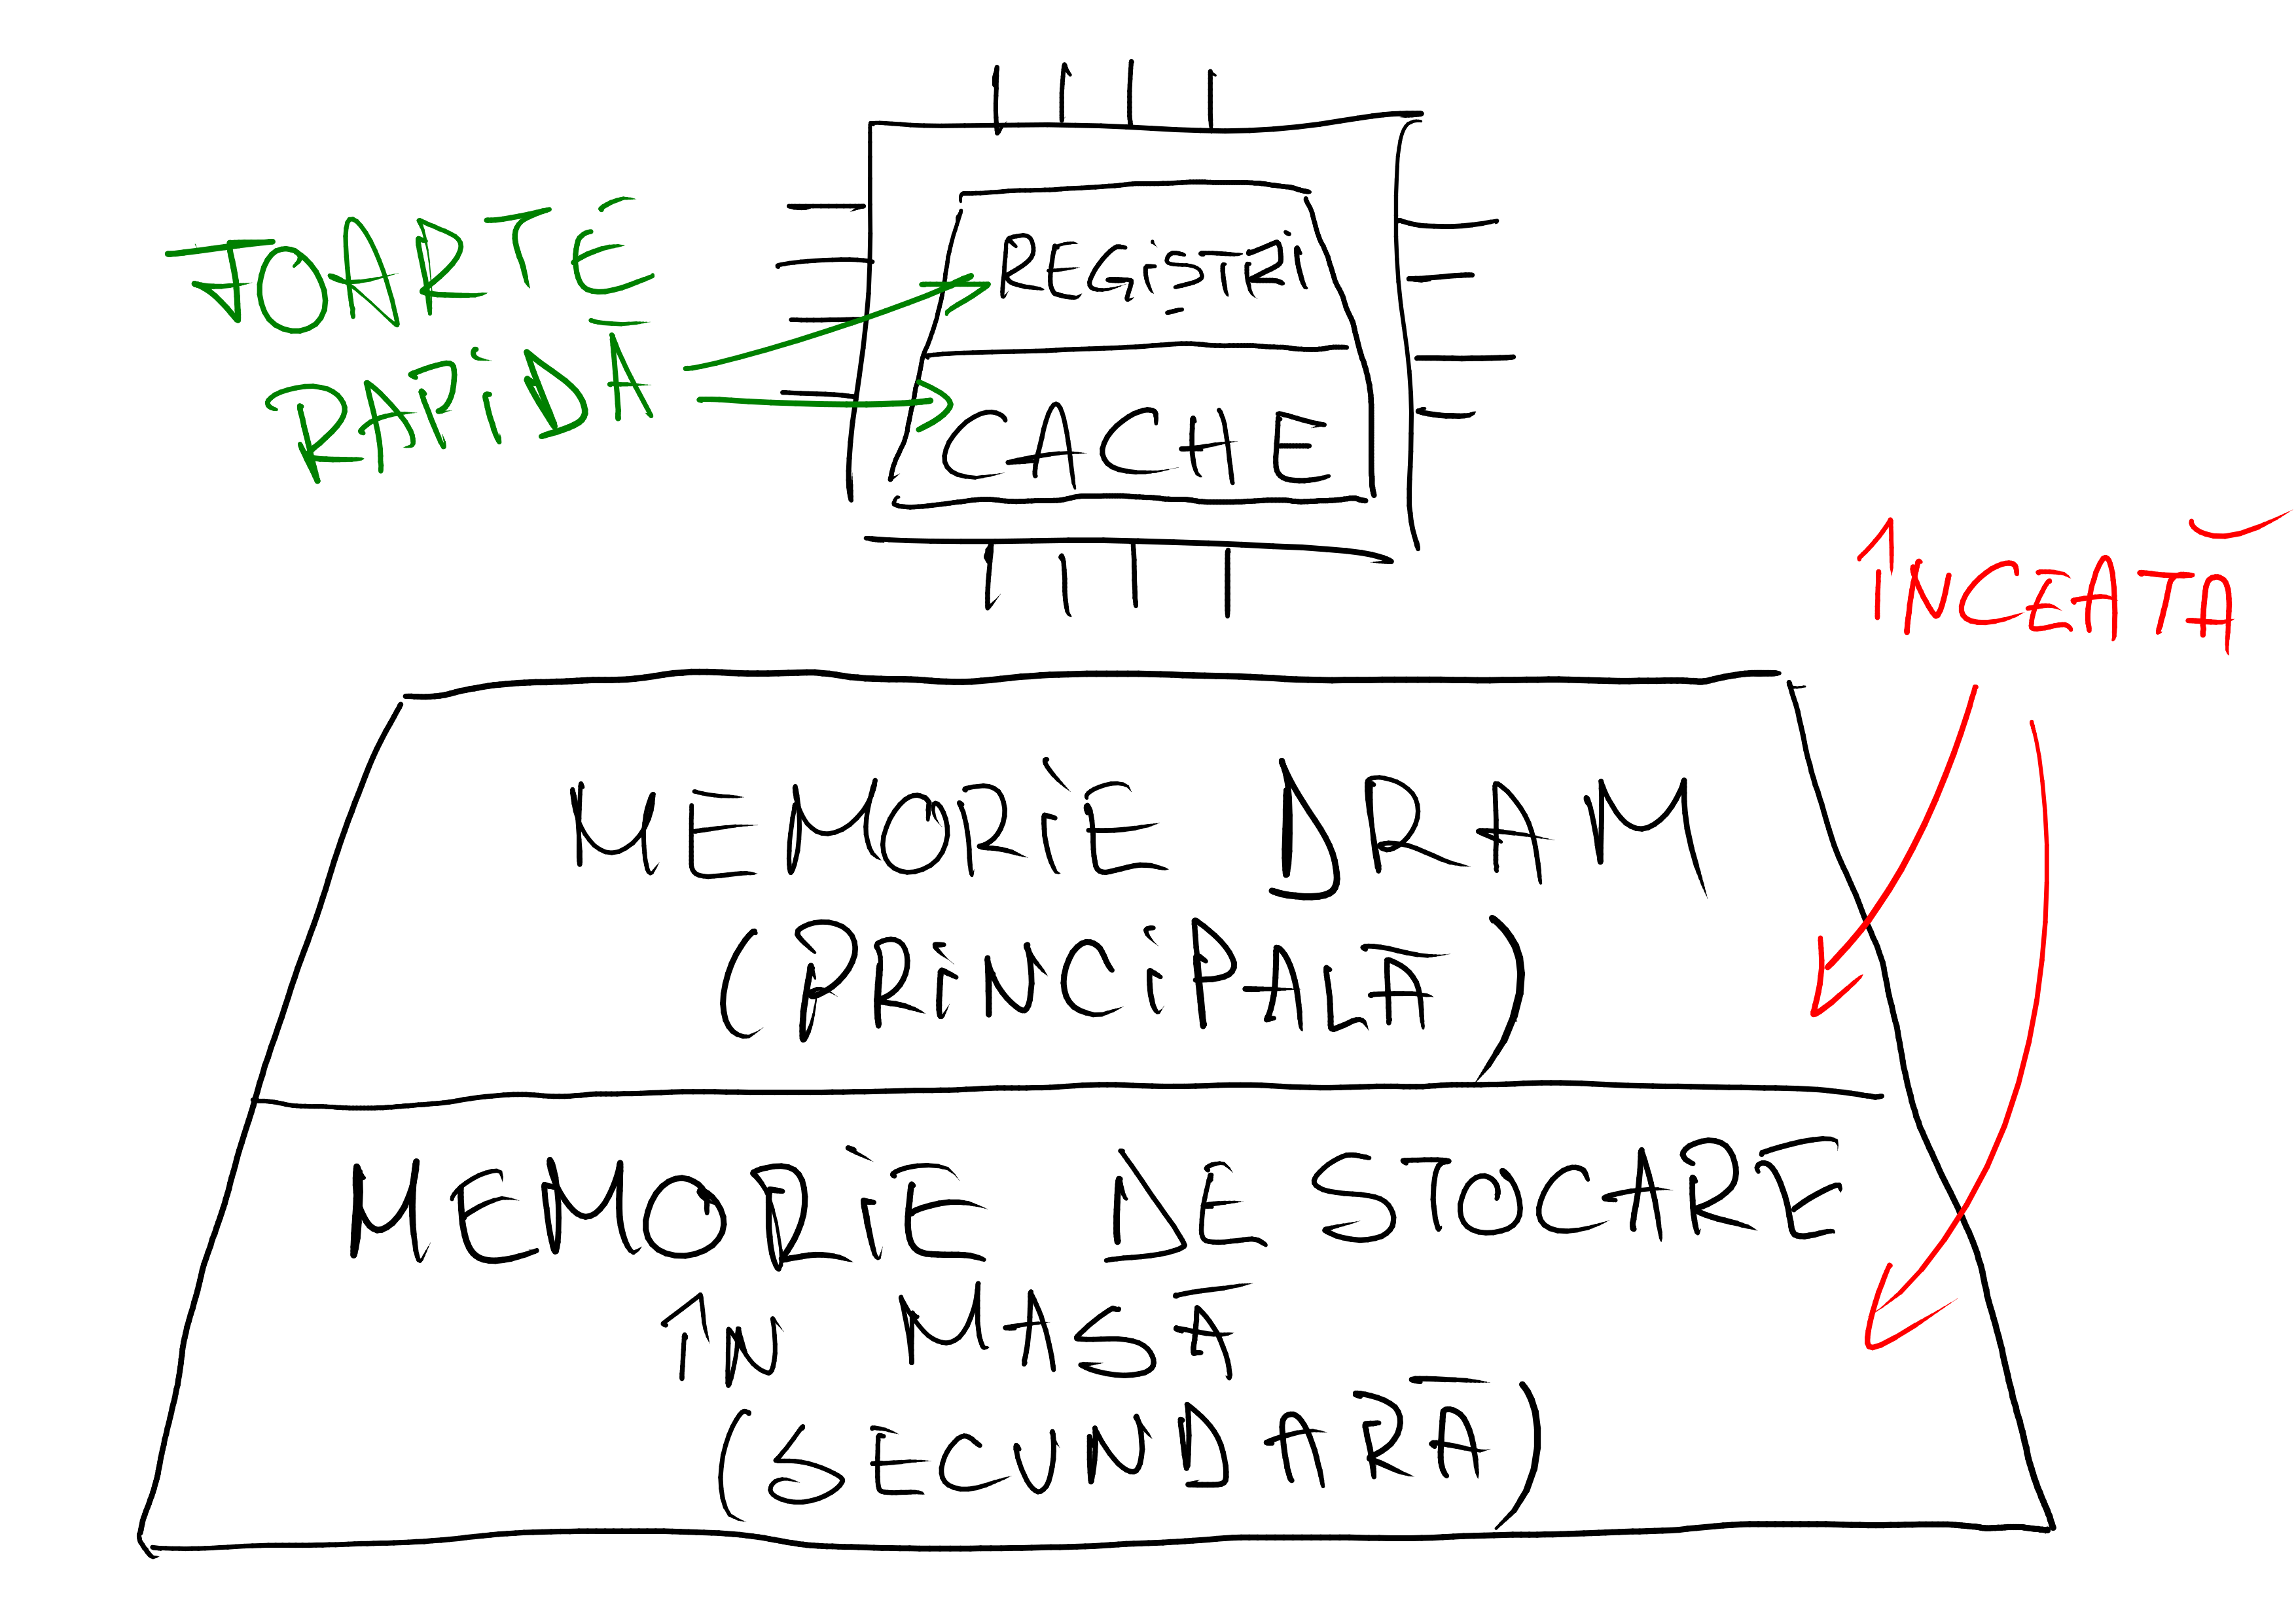 FOARTE
RAPIDĂ
REGIȘTRI
CACHE
ÎNCEATĂ
MEMORIE DRAM
(PRINCIPALĂ)
MEMORIE DE STOCARE
ÎN MASĂ
(SECUNDARĂ)